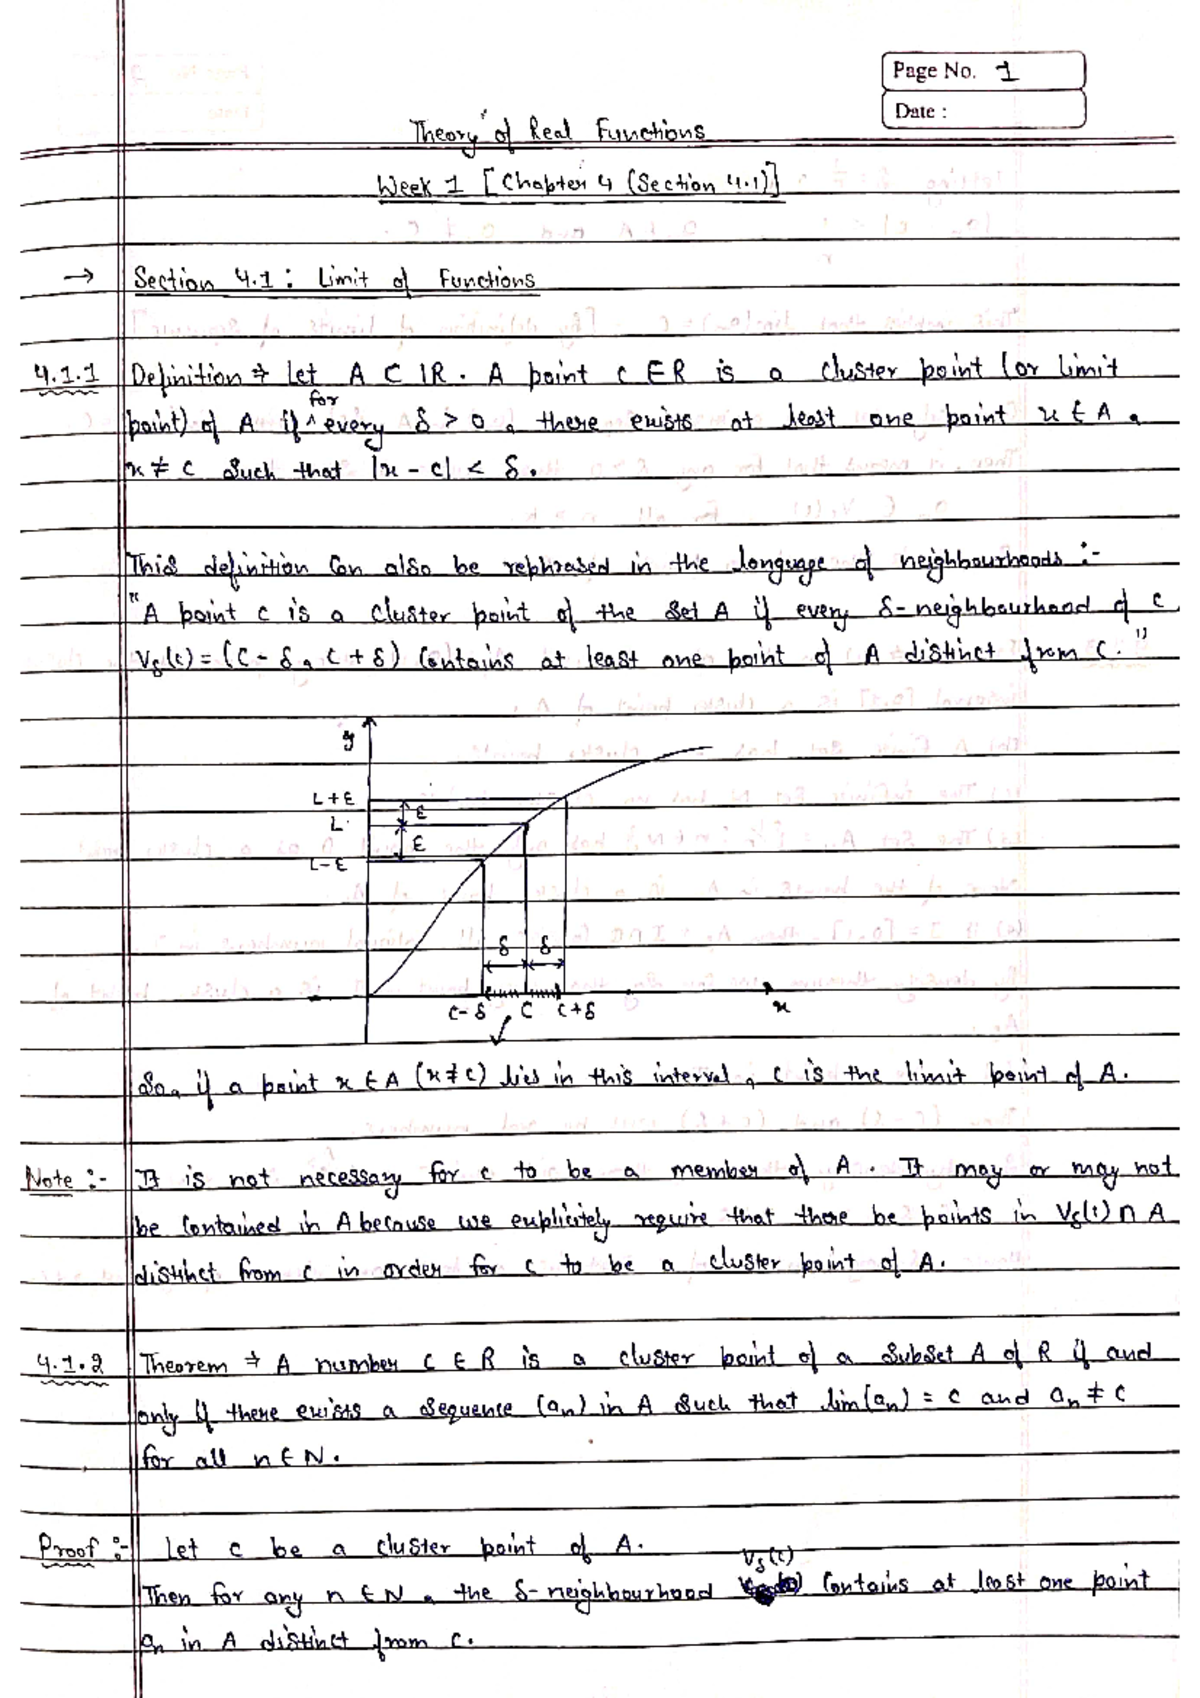 Page No. 1
Date :
Theory of Real Functions
Week 1 [Chapter 4 (Section 4.1)]
→ Section 4.1 : Limit of Functions
4.1.1 Definition ⇒ Let A ⊂ IR. A point c ∈ R is a cluster point (or limit
point) of A if ^for every δ > 0, there exists at least one point x ∈ A,
x ≠ c such that |x - c| < δ.
This definition can also be rephrased in the language of neighbourhoods :-
"A point c is a cluster point of the set A if every δ-neighbourhood of c
Vδ(c) = (c - δ, c + δ) contains at least one point of A distinct from c."
y
L+ε
ε
L
ε
L-ε
δ δ
c-δ c c+δ x
So, if a point x ∈ A (x ≠ c) lies in this interval, c is the limit point of A.
Note :- It is not necessary for c to be a member of A. It may or may not
be contained in A because we explicitely require that there be points in Vδ(c) ∩ A
distinct from c in order for c to be a cluster point of A.
4.1.2 Theorem ⇒ A number c ∈ R is a cluster point of a subset A of R if and
only if there exists a sequence (an) in A such that lim(an) = c and an ≠ c
for all n ∈ N.
Proof :- Let c be a cluster point of A.
Then for any n ∈ N, the δ-neighbourhood Vδ(c) contains at least one point
an in A distinct from c.